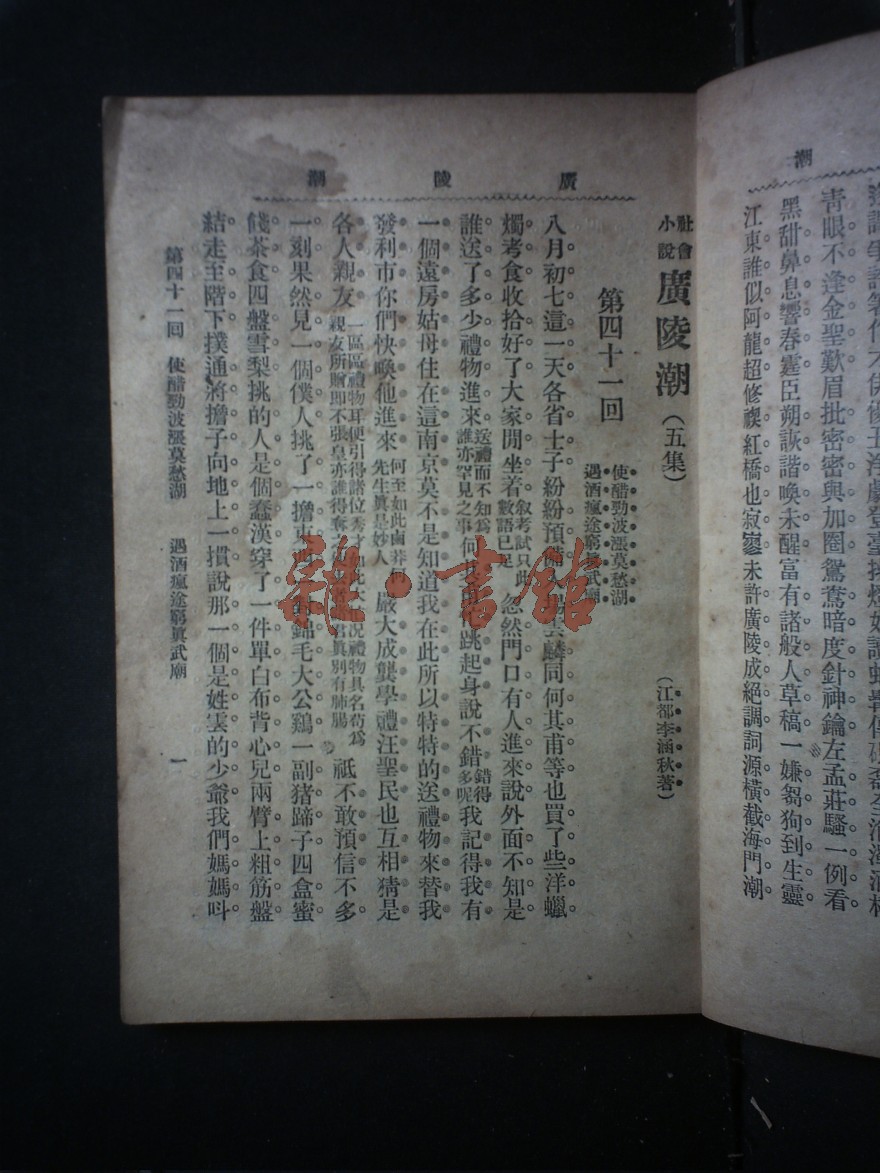 潮
青眼不逢金聖歎眉批密密與加圈鴛鴦暗度針神鑰左孟莊騷一例看
黑甜鼻息響春霆臣朔詼諧喚未醒富有諸般人草稿一嫌芻狗到生靈
江東誰似阿龍超修禊紅橋也寂寥未許廣陵成絕調詞源橫截海門潮
廣陵潮
社會小說 廣陵潮（五集）
（江都李涵秋著）
第四十一回
使醋勁波漲莫愁湖
遇酒瘋途窮眞武廟
八月初七這一天各省士子紛紛預備入場雲麟同何其甫等也買了些洋蠟
燭考食收拾好了大家閒坐着 敘考試只此數語已足 忽然門口有人進來說外面不知是
誰送了多少禮物進來 送禮而不知爲誰亦罕見之事 何其甫跳起身說不錯 錯得多呢 我記得我有
一個遠房姑母住在這南京莫不是知道我在此所以特特的送禮物來替我
發利市你們快喚他進來 何至如此鹵莽何先生眞是妙人 嚴大成龔學禮汪聖民也互相猜是
各人親友 一區區禮物耳便引得諸位秀才如此 況禮物具名苟爲親友所贈即不張皇亦誰得奪 君眞別有肺腸 祇不敢預信不多
一刻果然見一個僕人挑了一擔東西 錦毛大公鷄一副猪蹄子四盒蜜
餞茶食四盤雪梨挑的人是個蠢漢穿了一件單白布背心兒兩臂上粗筋盤
結走至階下撲通將擔子向地上一摜說那一個是姓雲的少爺我們媽媽呌
第四十一回 使醋勁波漲莫愁湖 遇酒瘋途窮眞武廟 一
雜·書館